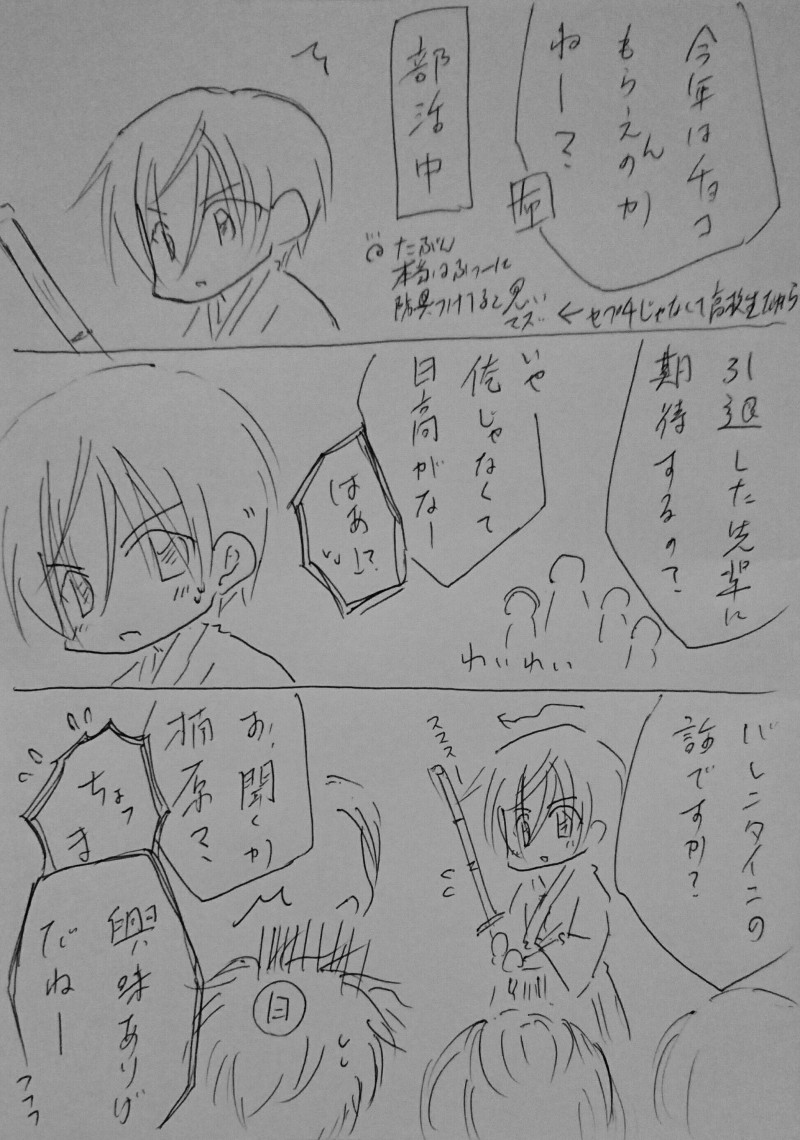 今年はチョコ
もらえんのか
ねー?
部活中
たぶん
本当はふつーに
防具つけてると思い
マス
←セブチじゃなくて高校生だから
引退した先輩に
期待するの?
いや
俺じゃなくて
日高がなー
はあ!?
わいわい
バレンタインの
話ですか?
ススス
お、聞くか
楠原?
ちょっ
ま
興味ありげ
だねー
フフフ
日